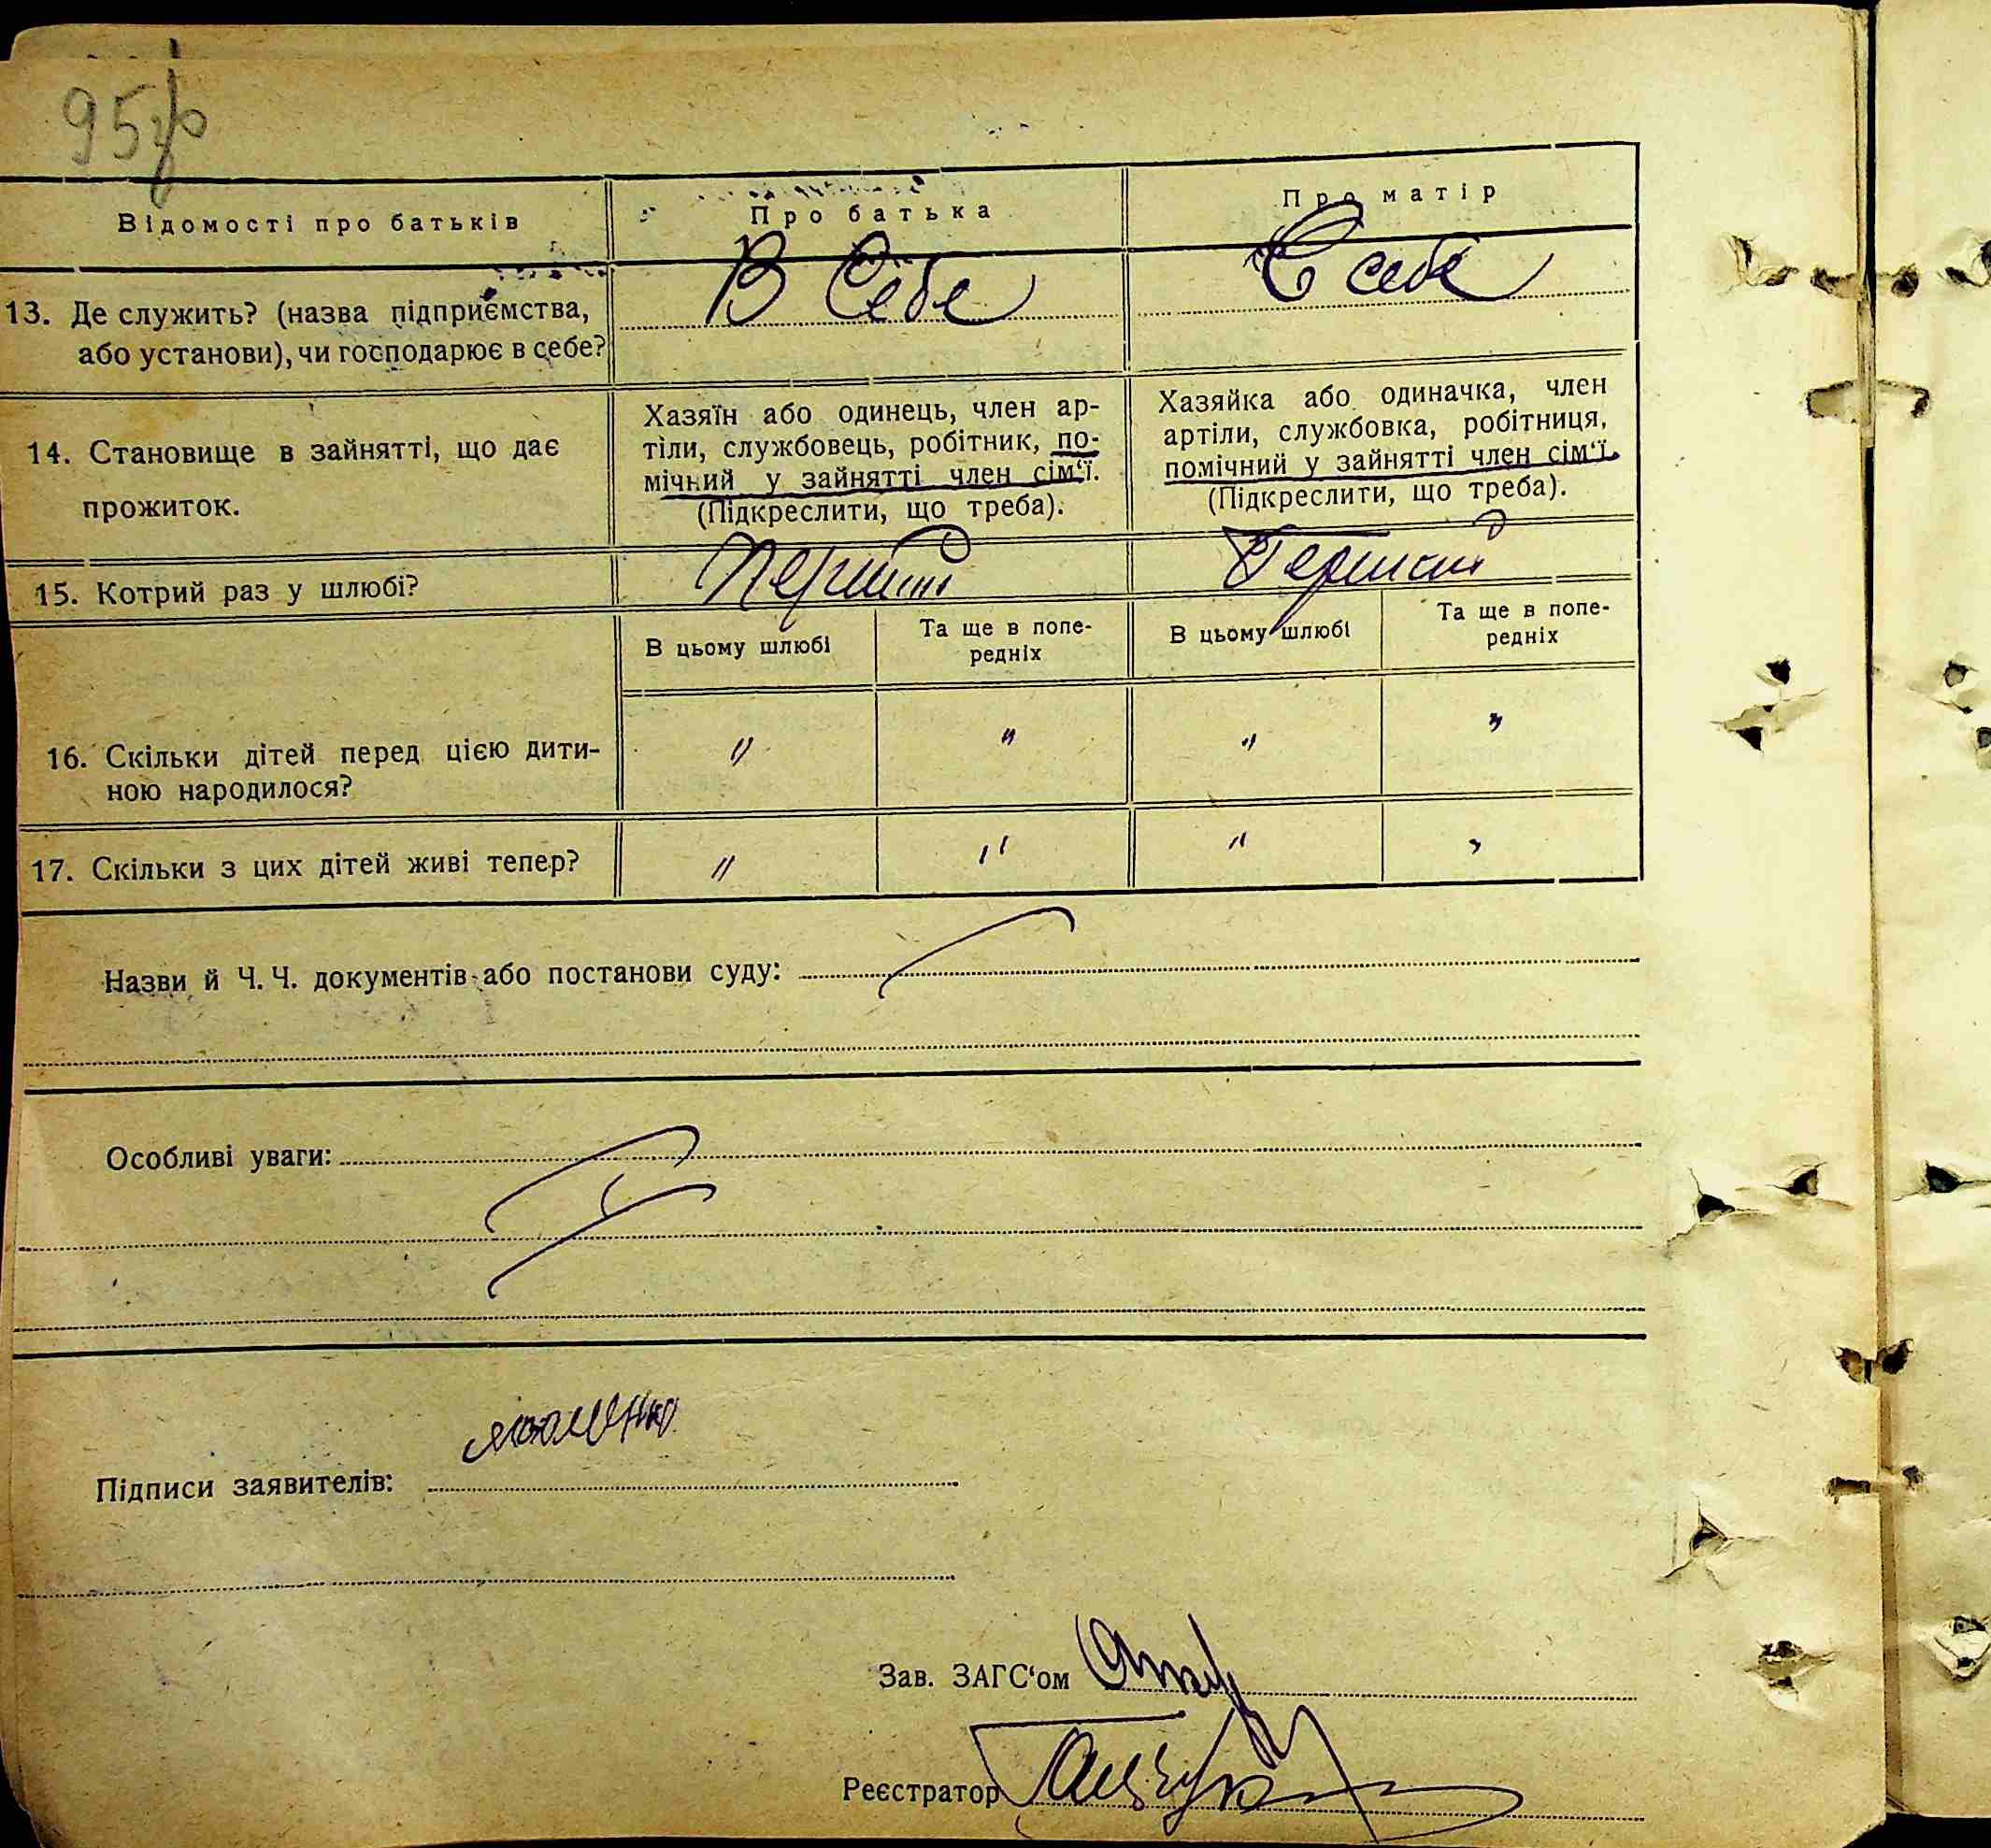 95
Відомості про батьків
Про батька
Про матір
13. Де служить? (назва підприємства,
або установи), чи господарює в себе?
В Себе
В себе
14. Становище в зайнятті, що дає
прожиток.
Хазяїн або одинець, член ар-
тіли, службовець, робітник, по-
мічний у зайнятті член сім‘ї.
(Підкреслити, що треба).
Хазяйка або одиначка, член
артіли, службовка, робітниця,
помічний у зайнятті член сім‘ї.
(Підкреслити, що треба).
15. Котрий раз у шлюбі?
Перший
Перший
В цьому шлюбі
Та ще в попе-
редніх
В цьому шлюбі
Та ще в попе-
редніх
16. Скільки дітей перед цією дити-
ною народилося?
" " " "
17. Скільки з цих дітей живі тепер?
" " " "
Назви й Ч. Ч. документів або постанови суду:
Особливі уваги:
Підписи заявителів:
Зав. ЗАГС‘ом
Реєстратор